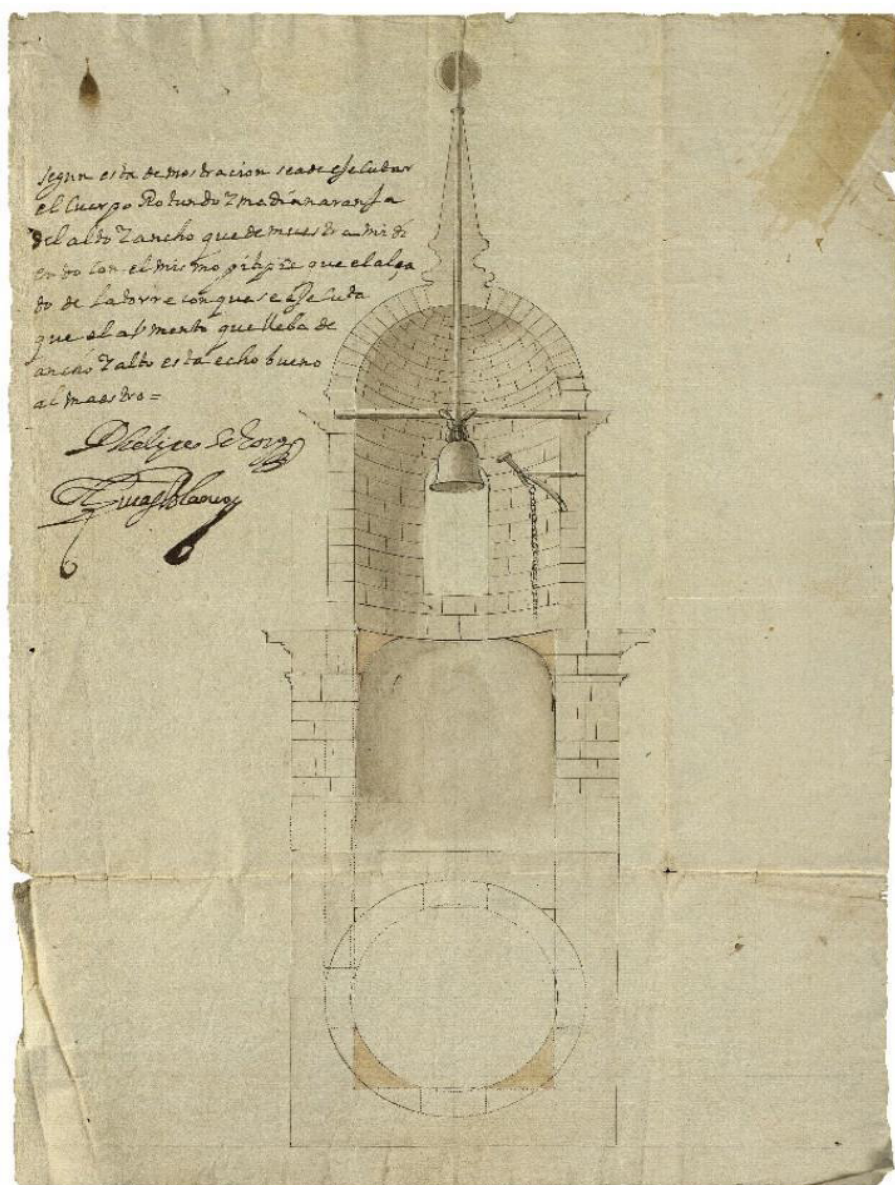 segun esta demostracion seade ejecutar
el Cuerpo Rotundo Y madia naranja
del alto Y ancho que demuestra midi
endo con el mismo pitipie que el alça
do de la torre con que se ejecuta
que el aumento que lleba de
ancho Y alto esta echo bueno
al maestro =
Phelipe